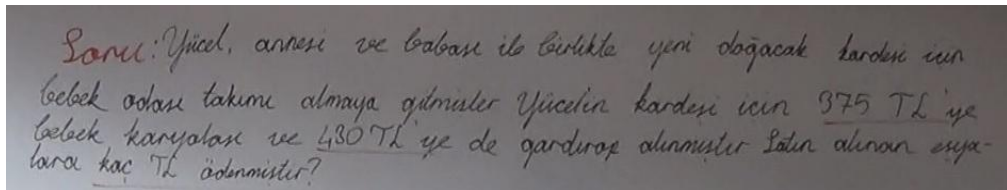 Soru: Yücel, annesi ve babası ile birlikte yeni doğacak kardesi icin
bebek odası takımı almaya gitmisler Yücelin kardesi icin 375 TL'ye
bebek karyolası ve 430 TL'ye de gardırop alınmıstır Satın alınan esya-
lara kaç TL ödenmistir?